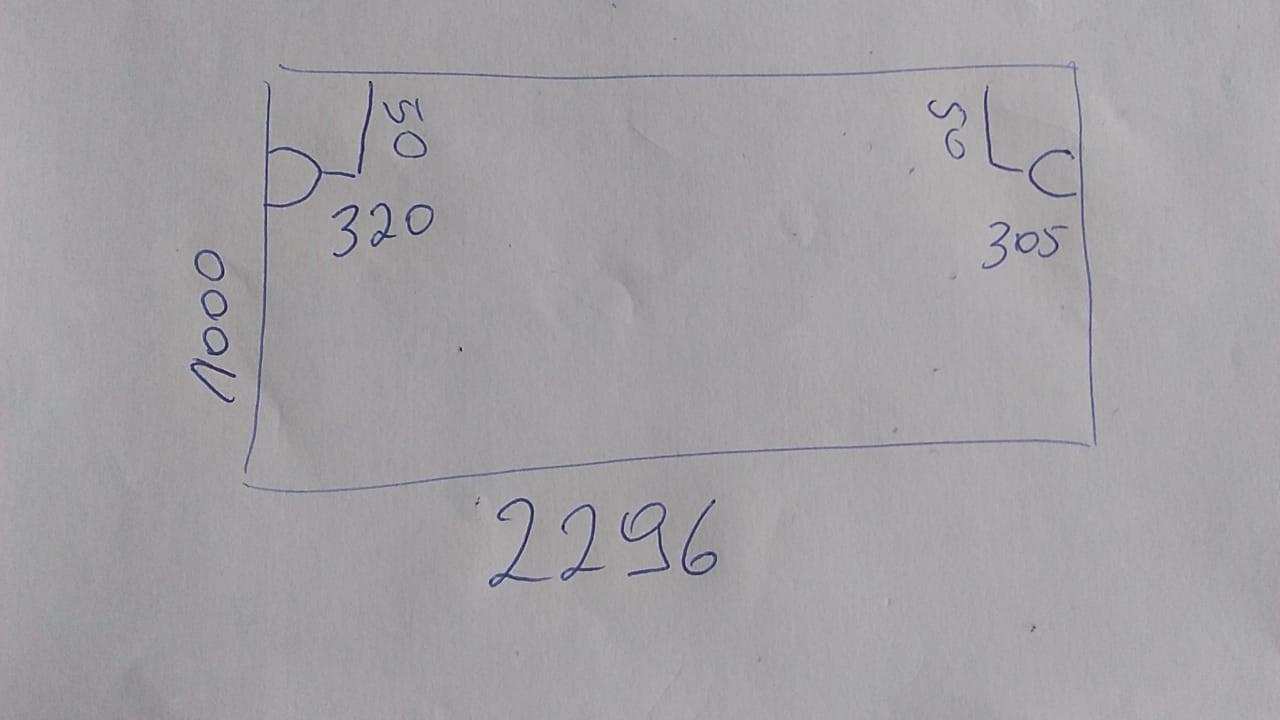 50
50
320
305
1000
2296